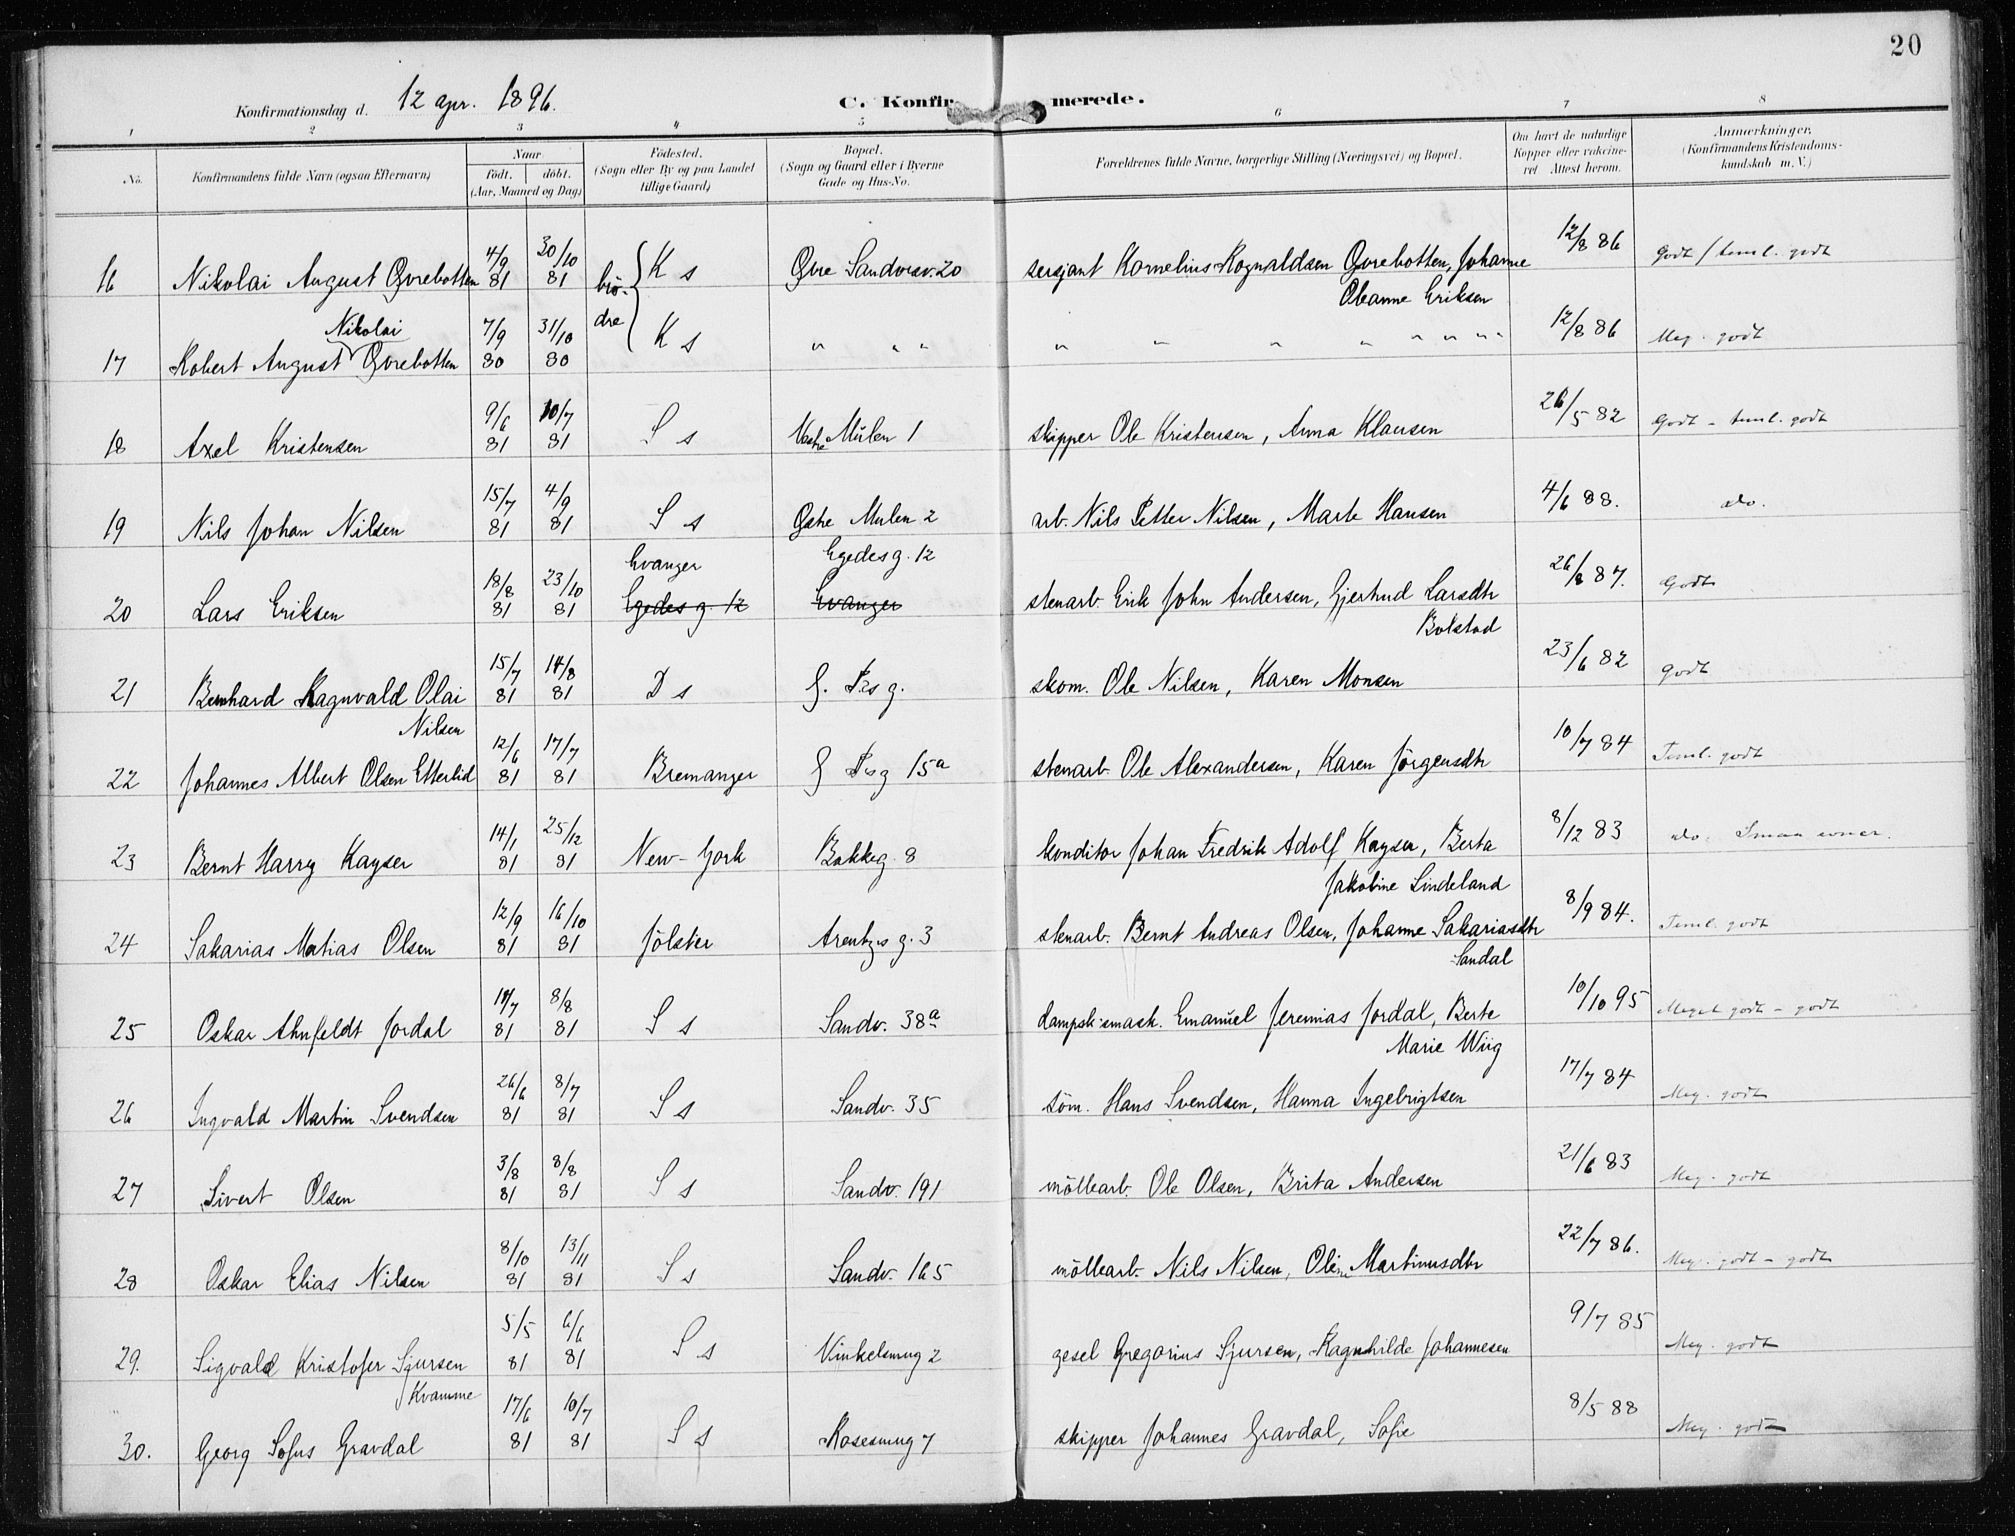 20
Konfirmationsdag d. 12 apr. 1896.
C. Konfirmerede.
1 2 3 4 5 6 7 8
No. Konfirmandens fulde Navn (ogsaa Efternavn) Naar födt. döbt. (Aar, Maaned og Dag) Födested. (Sogn eller By og paa Landet tillige Gaard) Bopæl. (Sogn og Gaard eller i Byerne Gade og Hus-No. Forældrenes fulde Navne, borgerlige Stilling (Næringsvei) og Bopæl. Om havt de naturlige Kopper eller vakcineret Attest herom. Anmærkninger, (Konfirmandens Kristendomskundskab m. V.)
16 Nikolai August Øvrebotten 4/9 81 30/10 81 brödre K s Øvre Sandvksv. 20 sersjant Kornelius Rognaldsen Øvrebotten, Johanne Oleanne Eriksen 12/8 86 Godt / teml. godt
17 Robert August Nikolai Øvrebotten 7/9 80 31/10 80 K s " " " " " " " " " " 12/8 86 Meg. godt
18 Axel Kristensen 9/6 81 10/7 81 S s Vestre Mulen 1 skipper Ole Kristensen, Anna Klausen 26/5 82 Godt - teml. godt
19 Nils Johan Nilsen 15/7 81 4/9 81 S s Østre Mulen 2 arb. Nils Petter Nilsen, Marte Hansen 4/6 88. do.
20 Lars Eriksen 18/8 81 23/10 81 Evanger Egedes g. 12 Egedes g. 12 Evanger stenarb. Erik John Andersen, Gjertrud Larsdtr Bolstad 26/8 87. Godt
21 Bernhard Ragnvald Olai Nilsen 15/7 81 14/8 81 D s skom. Ole Nilsen, Karen Monsen 23/6 82 godt
22 Johannes Albert Olsen Etterlid 12/6 81 17/7 81 Bremanger 15a stenarb. Ole Alexandersen, Karen Jörgensdtr 10/7 84 Teml. godt
23 Bernt Harry Kayser 14/1 81 25/12 81 New-York Bakkeg. 8 konditor Johan Fredrik Adolf Kayser, Berta Jakobine Lindeland 8/12 83 do. Smaa evner.
24 Sakarias Matias Olsen 12/9 81 16/10 81 Jölster Arentzes g. 3 stenarb. Bernt Andreas Olsen, Johanne Sakariasdtr Sandal 8/9 84. Teml. godt
25 Oskar Ahnfeldt Jordal 14/7 81 8/8 81 S s Sandv. 38a dampsk.smask. Emanuel Jeremias Jordal, Berte Marie Wiig 10/10 95 Meget godt - godt
26 Ingvald Martin Svendsen 26/6 81 8/7 81 S s Sandv. 35 söm. Hans Svendsen, Hanna Ingebrigtsen 17/7 84 Meg. godt
27 Sivert Olsen 3/8 81 8/8 81 S s Sandv. 191 möllearb. Ole Olsen, Brita Andersen 21/6 83 Meg. godt
28 Oskar Elias Nilsen 8/10 81 13/11 81 S s Sandv. 165 möllearb. Nils Nilsen, Oline Martinusdtr 22/7 86. Meg. godt - godt
29. Sigvald Kristofer Sjursen Kvamme 5/5 81 6/6 81 S s Vinkelsmug 2 gesel Gregorius Sjursen, Ragnhilde Johannesen 9/7 85 Meg. godt
30. Georg Sofus Gravdal 17/6 81 10/7 81 S s Rosesmug 7 skipper Johannes Gravdal, Sofie 8/5 88 Meg. godt